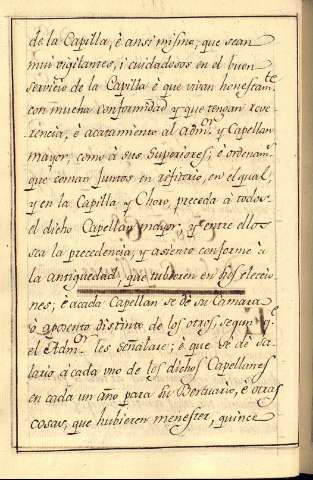 de la Capilla, è ansi mismo, que sean
mui vigilantes, i cuidadosos en el buen
servicio de la Capilla è que vivan honestam.te
con mucha conformidad y que tengan reve-
rencia, è acatamiento al Adm.or y Capellan
mayor, como à sus Superiores, è ordenam.s
que coman juntos en refitorio, en el qual,
y en la Capilla y Choro, preceda à todos
el dicho Capellan mayor, y entre ellos
sea la precedencia, y asiento conforme à
la antiguedad, que tubieren en
nes; è acada Capellan se dè su Camara
ò aposento distinto de los otros, segun q.e
el Adm.or les señalare; è que se dè sa-
lario à cada uno de los dichos Capellanes
en cada un año para su Bestuario, è otras
cosas, que hubieren menester, quince